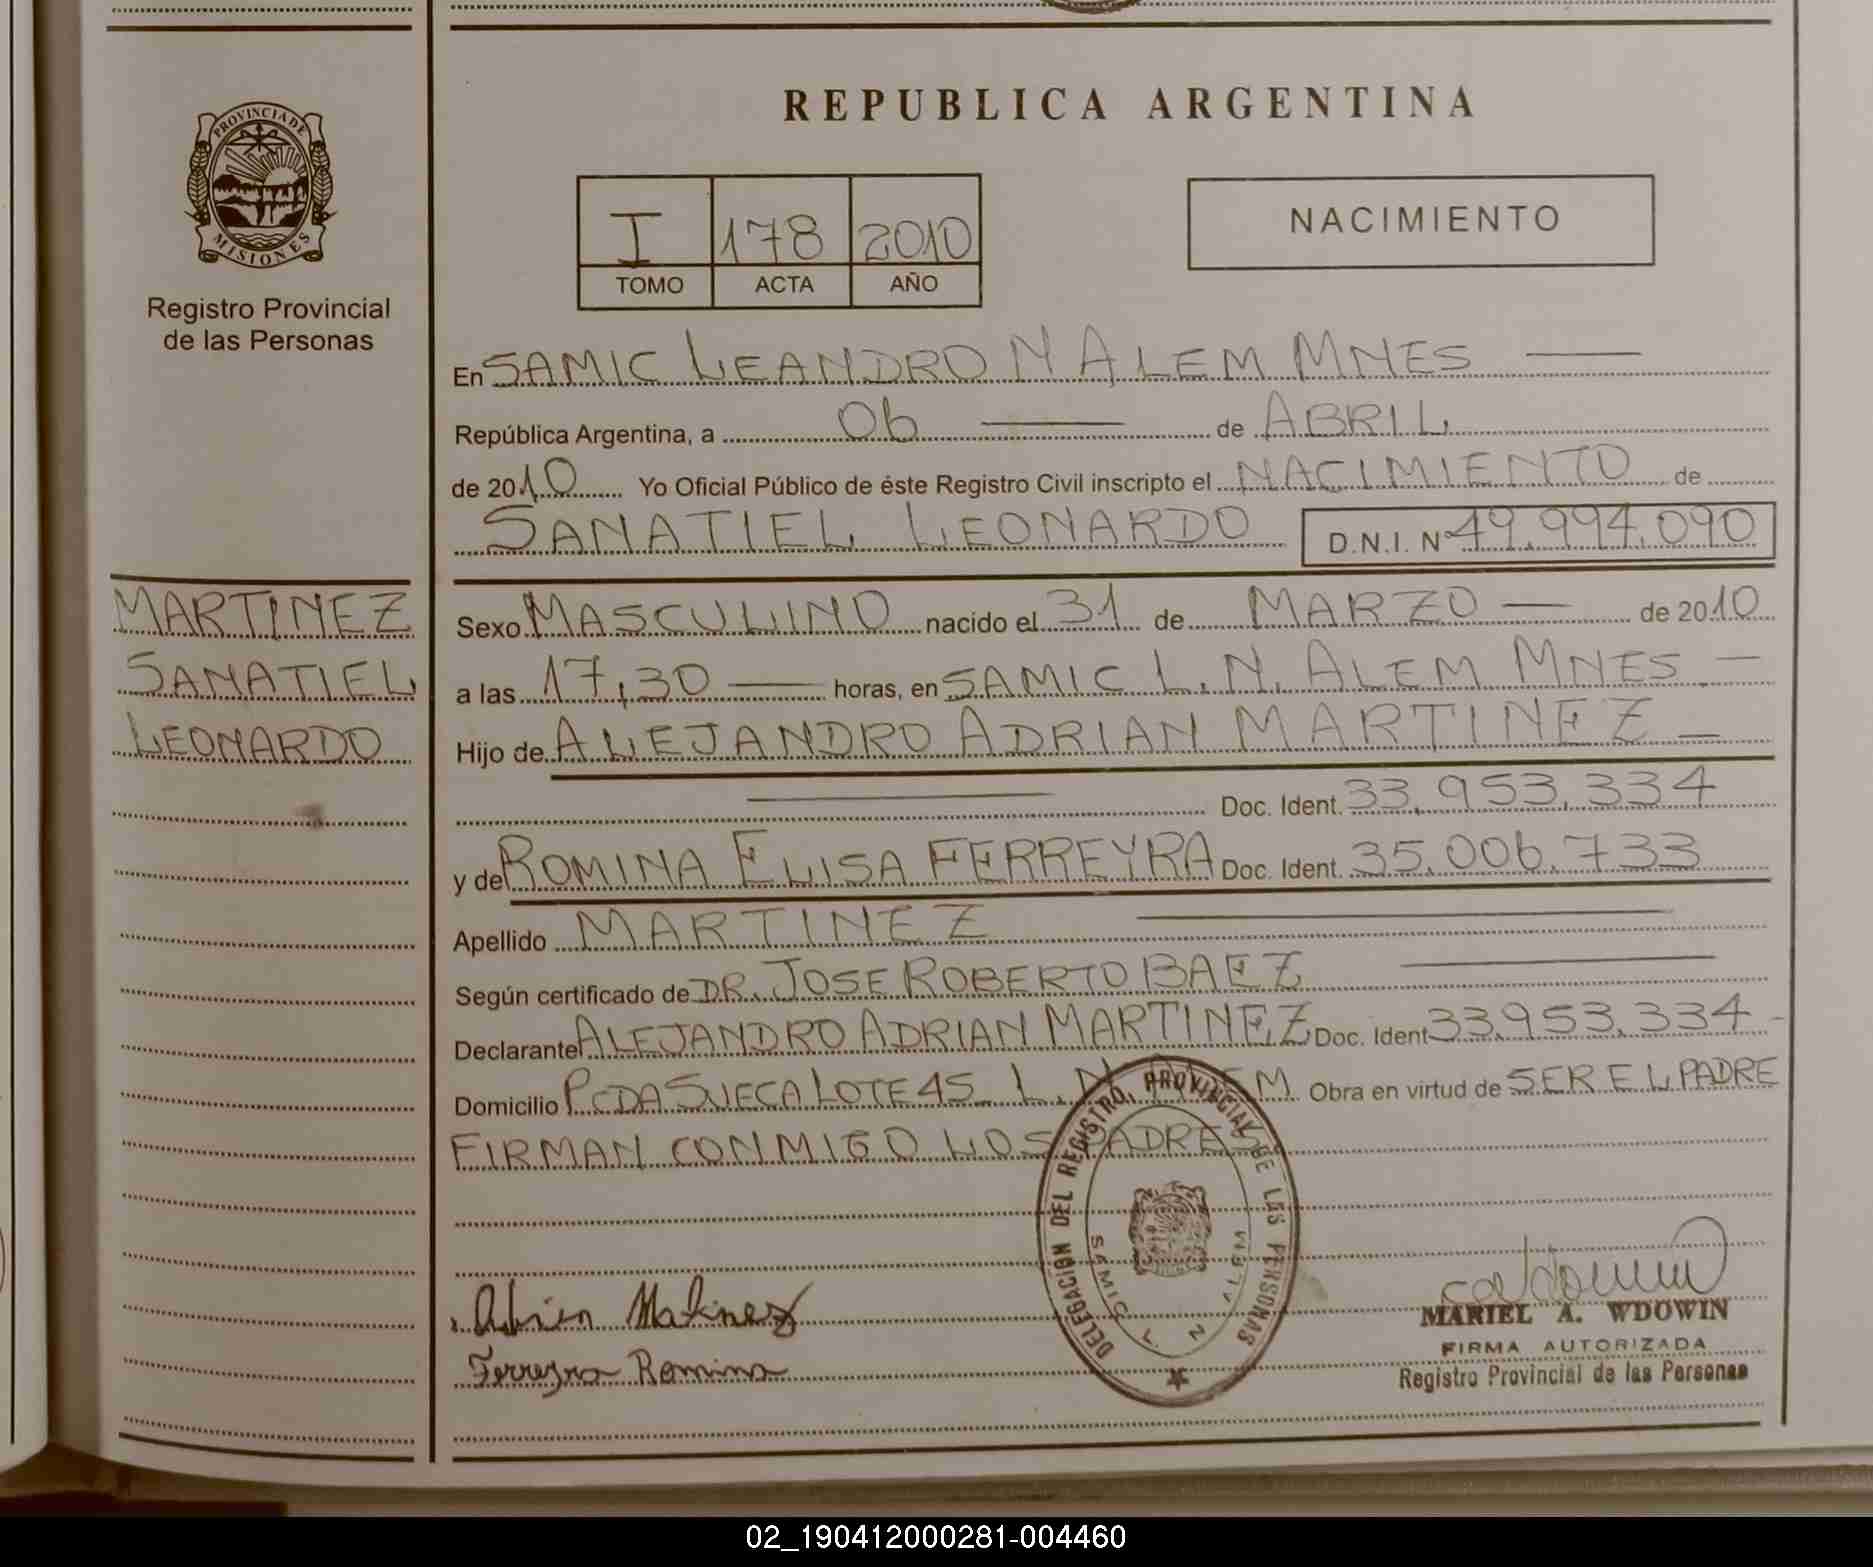 PROVINCIA DE
MISIONES
Registro Provincial
de las Personas
MARTINEZ
SANATIEL
LEONARDO
REPUBLICA ARGENTINA
I 178 2010
TOMO ACTA AÑO
NACIMIENTO
En SAMIC LEANDRO N ALEM MNES
República Argentina, a 06 de ABRIL
de 2010 Yo Oficial Público de éste Registro Civil inscripto el NACIMIENTO de
SANATIEL LEONARDO D.N.I. Nº 49.994.090
Sexo MASCULINO nacido el 31 de MARZO de 2010
a las 17,30 horas, en SAMIC L. N. ALEM MNES.
Hijo de ALEJANDRO ADRIAN MARTINEZ
Doc. Ident. 33.953.334
y de ROMINA ELISA FERREYRA Doc. Ident. 35.006.733
Apellido MARTINEZ
Según certificado de DR. JOSE ROBERTO BAEZ
Declarante ALEJANDRO ADRIAN MARTINEZ Doc. Ident 33.953.334
Domicilio PCDA SUECA LOTE 45 L. N. ALEM Obra en virtud de SER EL PADRE
FIRMAN CONMIGO LOS PADRES
DELEGACION DEL REGISTRO PROVINCIAL DE LAS PERSONAS
SAMIC L N ALEM
Adrian Martinez
Ferreyra Romina
MARIEL A. WDOWIN
FIRMA AUTORIZADA
Registro Provincial de las Personas
02_190412000281-004460